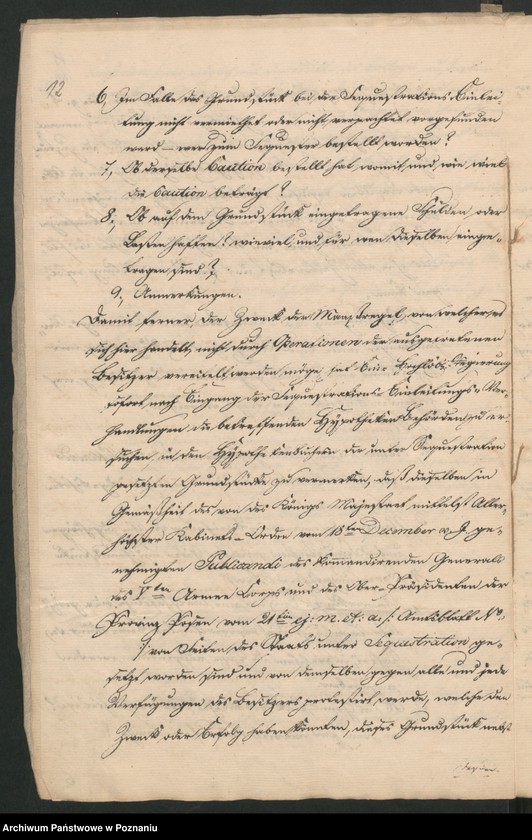 12
6, Im Falle das Grundstück bei der Sequestrations-Einlei-
tung nicht vermiethet oder nicht verpachtet vorgefunden
ward – wer zum Sequester bestellt worden?
7, Ob derselbe Caution bestellt hat womit, und wie viel
die Caution beträgt?
8, Ob auf dem Grundstück eingetragene Schulden oder
Lasten haften? wieviel, und für wen dieselben einge-
tragen sind?
9, Anmerkungen.
Damit ferner der Zweck der Maaßregel, von welcher es
sich hier handelt, nicht durch Operationen der ausgetretenen
Besitzer vereitelt werden möge, hat Eine Hochlöb. Regierung
sofort nach Eingang der Sequestrations-Einleitungs-Ver-
handlungen die betreffenden Hypotheken Behörden zu er-
suchen, in den Hypothekenbüchern der unter Sequestration
gesetzten Grundstücke zu vermerken, daß dieselben in
Gemäßheit des von des Königs Majestaet mittelst Aller-
höchster Kabinets-Ordre vom 18ten December v. J. ge-
nehmigten Publicandi des kommandirenden Generals
des Vten Armee Corps und des Ober-Präsidenten der
Provinz Posen vom 21ten ej: m. et: a. /: Amtsblatt No.
:/ von Seiten des Staats unter Sequestration ge-
setzt worden sind und von demselben gegen alle und jede
Verfügungen des Besitzers protestirt werde, welche den
Zweck oder Erfolg haben könnten, dieses Grundstück nebst
Archiwum Państwowe w Poznaniu